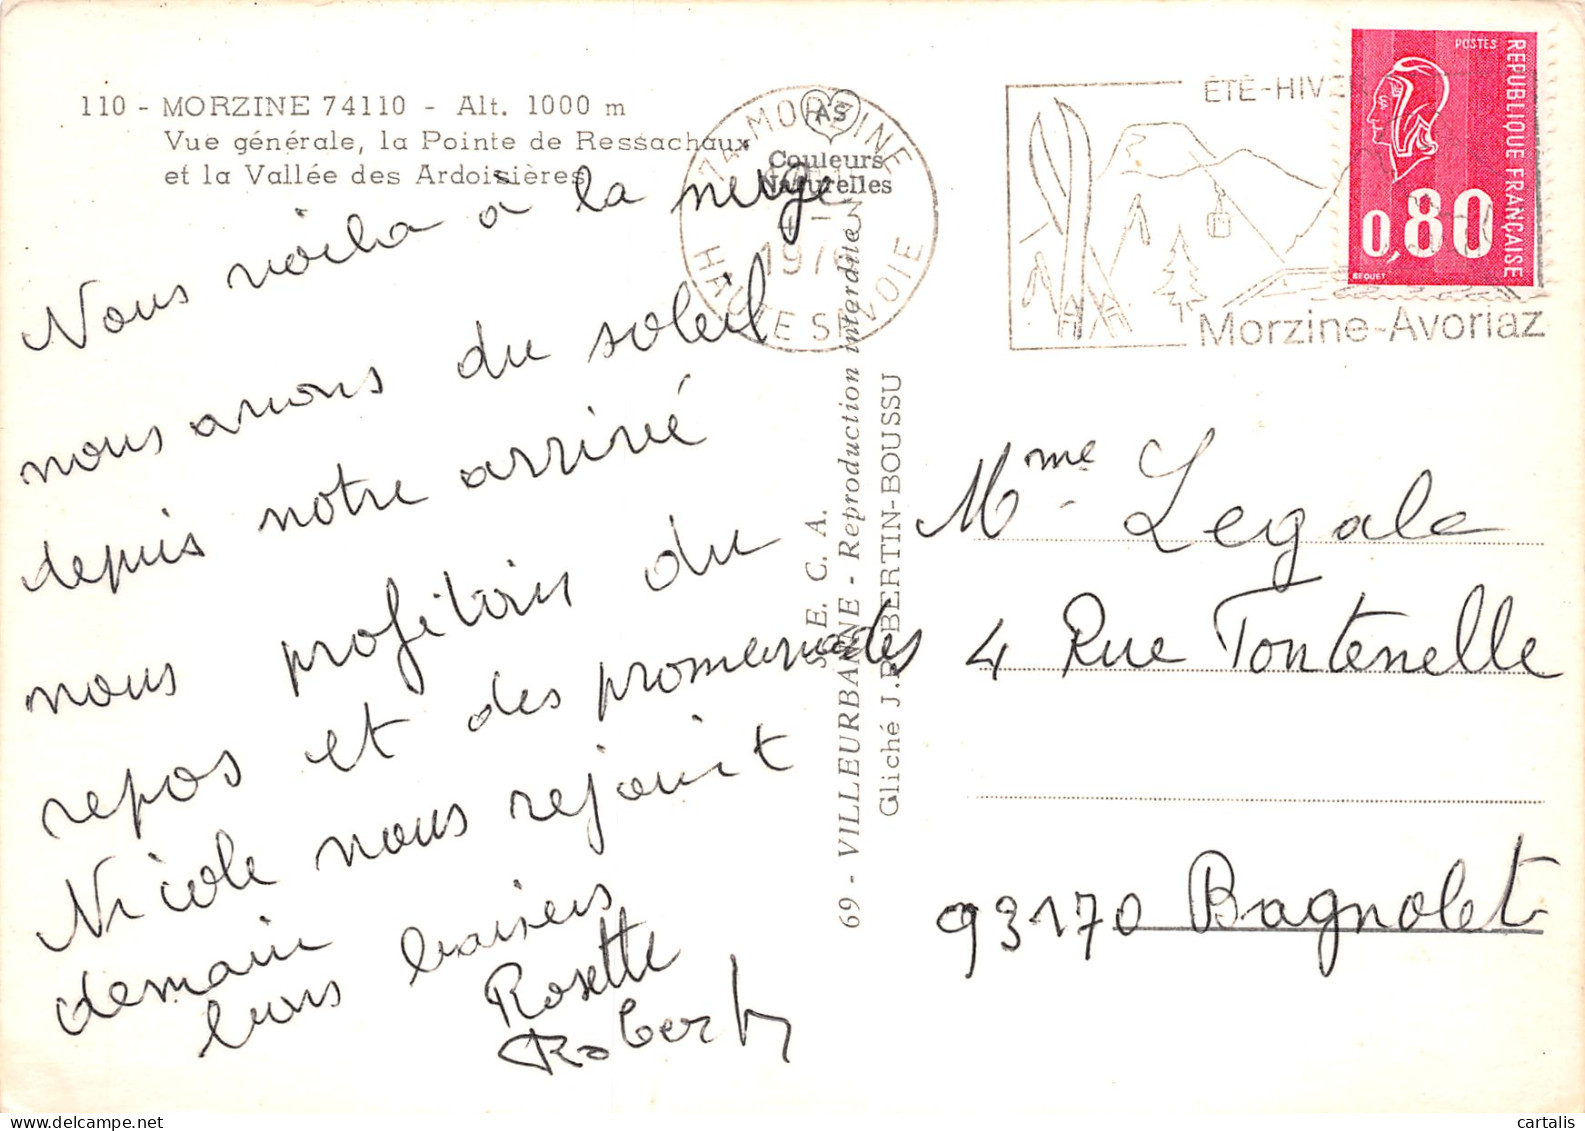 110 - MORZINE 74110 - Alt. 1000 m
Vue générale, la Pointe de Ressachaux
et la Vallée des Ardoisières
AS
Couleurs
Naturelles
74 MORZINE
HAUTE SAVOIE
ÉTÉ-HIVER
Morzine-Avoriaz
POSTES
REPUBLIQUE FRANÇAISE
0,80
BEQUET
Nous voila a la neige
nous avons du soleil
depuis notre arrivé
nous profitons du
repos et des promenades
Nicole nous rejoint
demain
bons baisers
Rosette
Robert
S. E. C. A.
69 - VILLEURBANNE - Reproduction interdite
Cliché J. BERTIN-BOUSSU
Mme Legale
4 Rue Fontenelle
93170 Bagnolet
cartalis